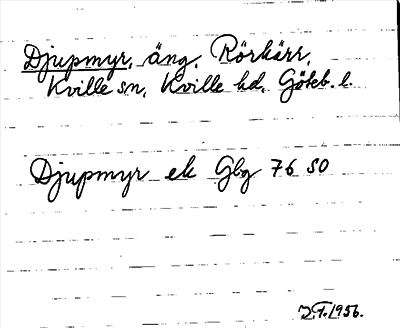 Djupmyr, äng, Rörkärr,
Kville sn, Kville hd, Göteb. l.
Djupmyr ek Gbg 76 SO
J.F. 1956.